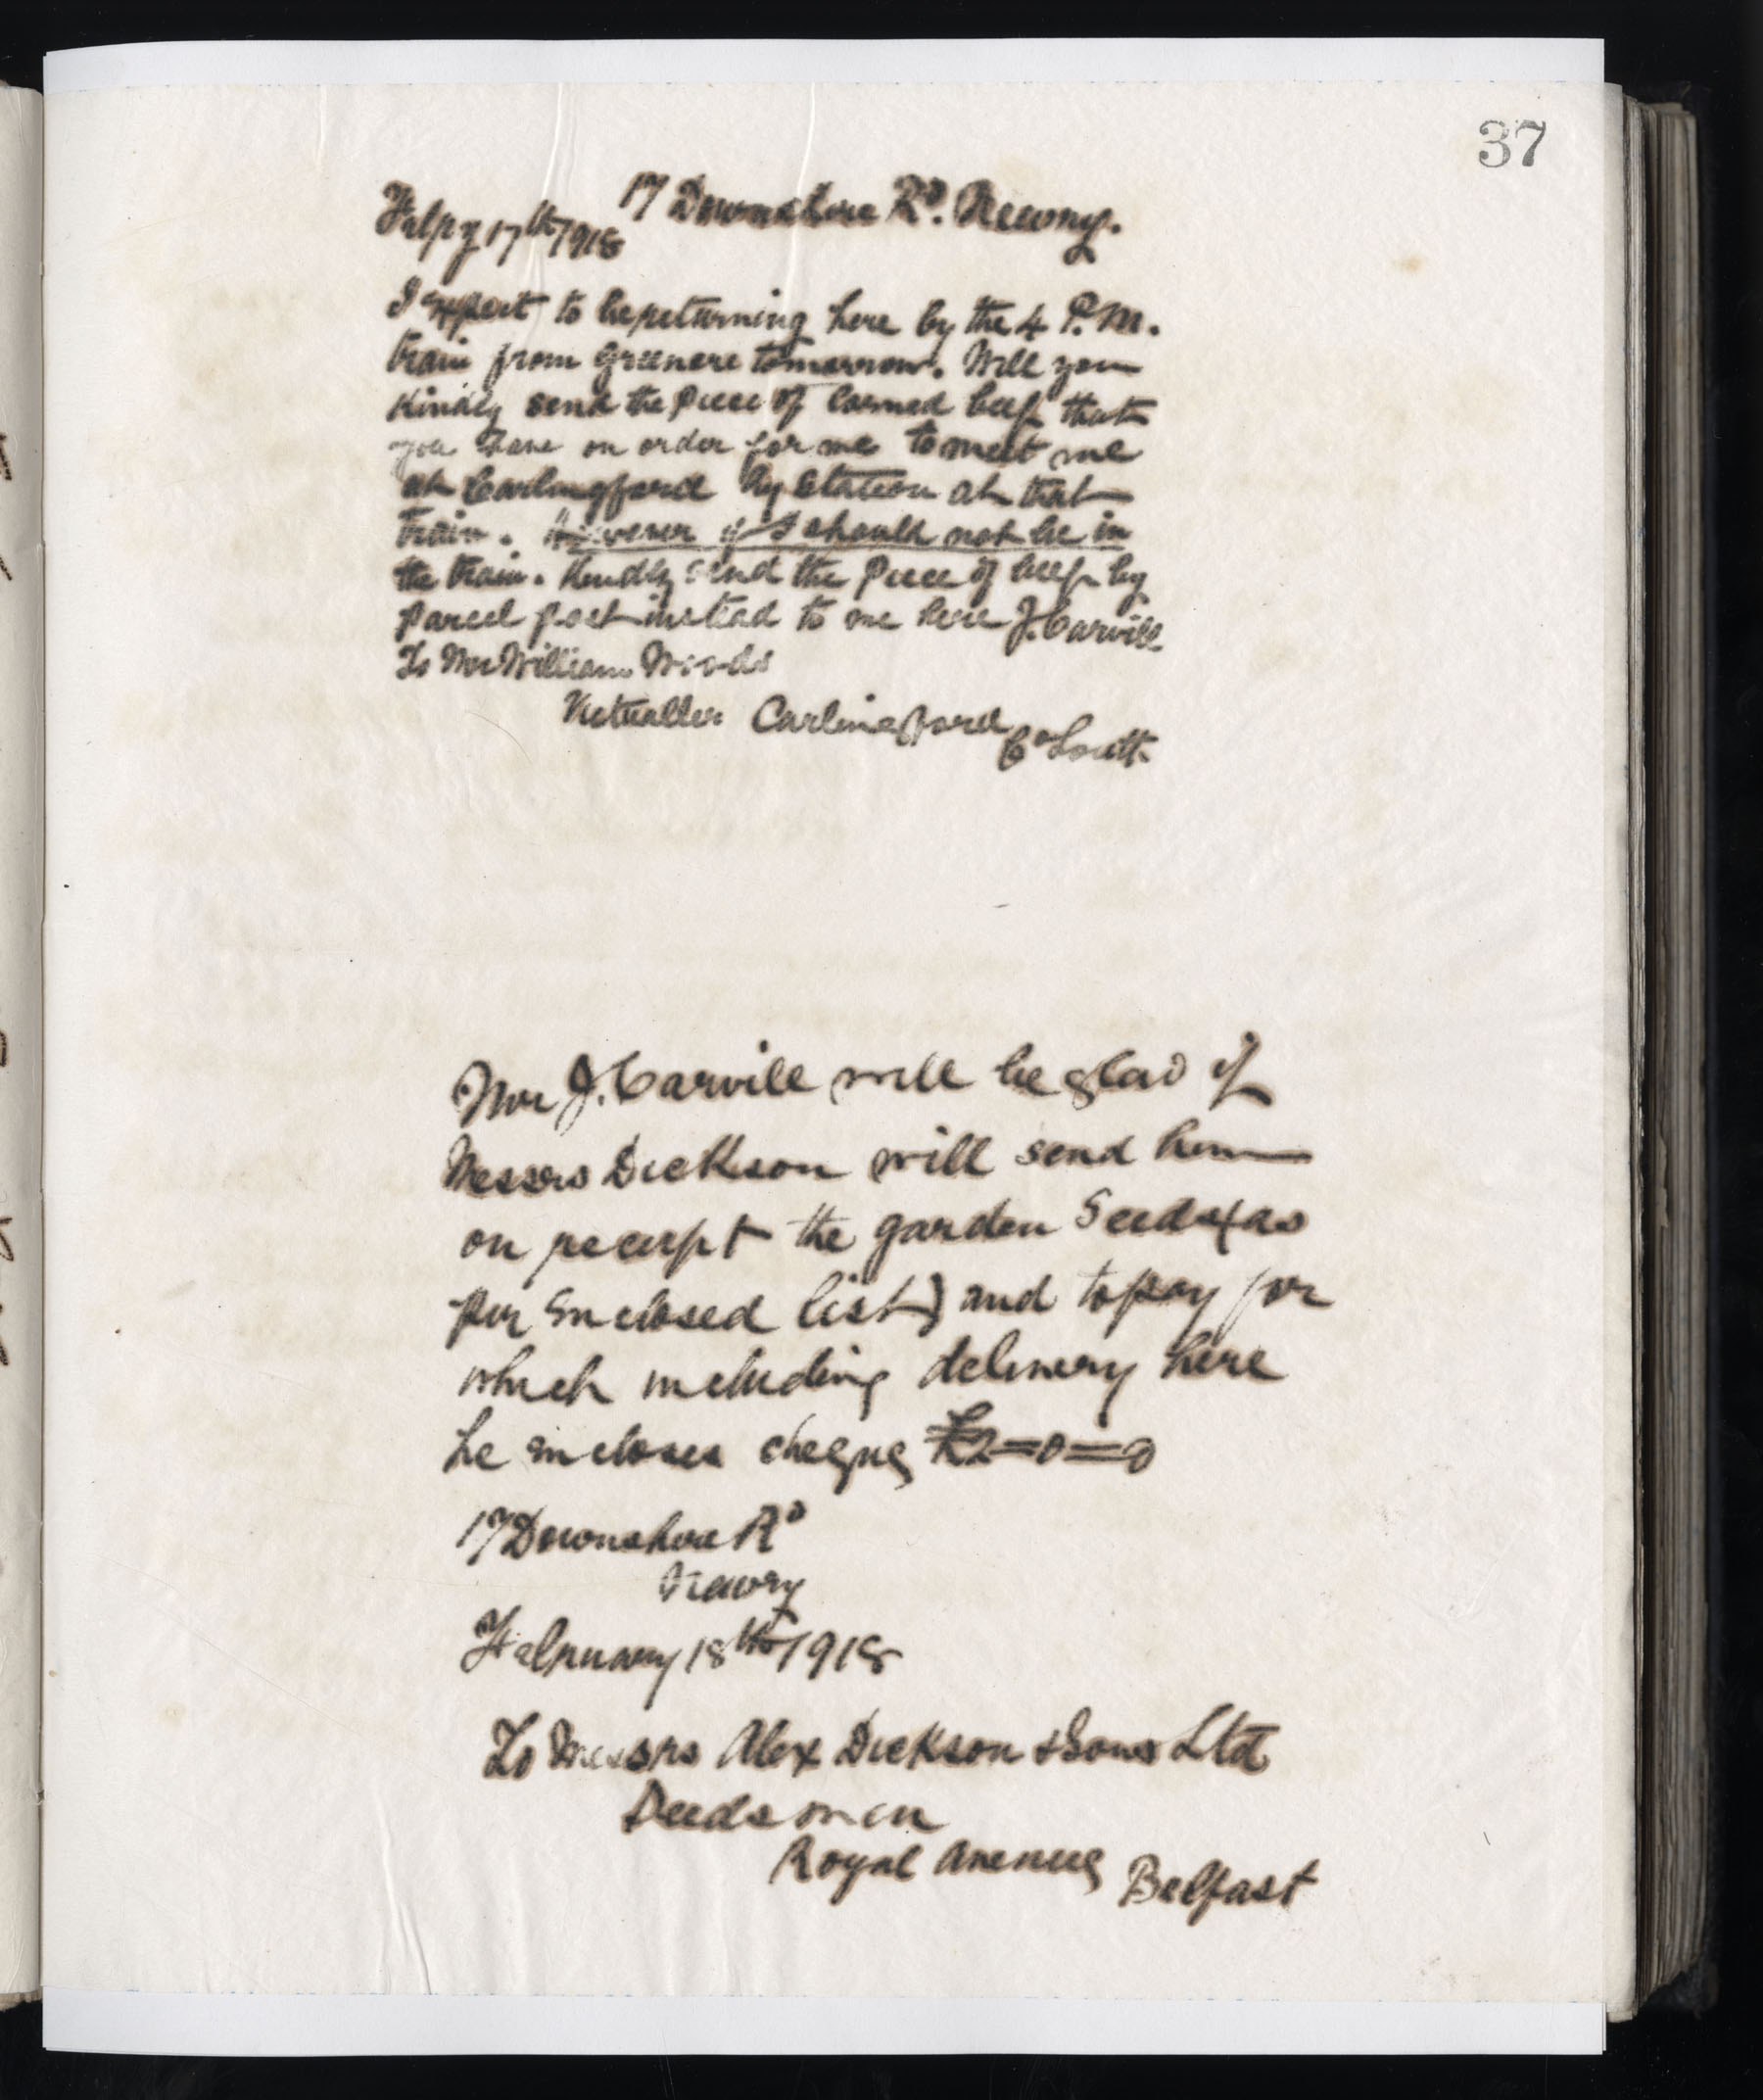 37
17 Downshire Rd. Newry.
Feby 17th/1918
I expect to be returning here by the 4 P.M.
train from Greenore tomorrow. Will you
Kindly send the piece of Corned beef that
you have on order for me to meet me
at Carlingford Ry Station at that
train. However if I should not be in
the train. Kindly send the piece of beef by
parcel post instead to me here J. Carvill
To Mr William Woods
Victualler Carlingford
Co Louth
Mr J. Carvill will be glad if
Messrs Dickson will send him
on receipt the garden Seeds (as
per enclosed list) and to pay for
which including delivery here
he encloses cheque £2=0=0
17 Downshire Rd
Newry
February 18th/1918
To Messrs Alex Dickson & Sons Ltd
Seedsmen
Royal Avenue Belfast